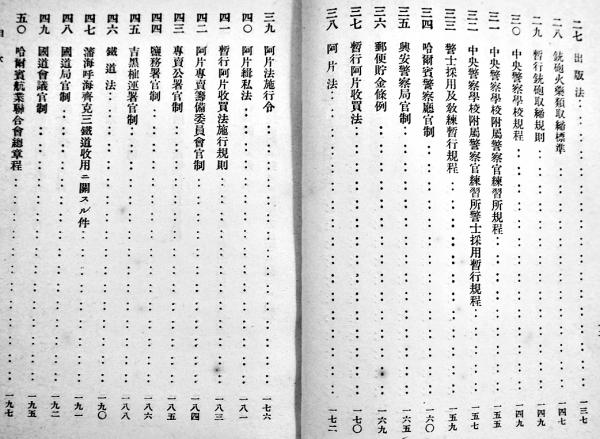 二七 出版法……一三七
二八 銃砲火藥類取締標準……一四七
二九 暫行銃砲取締規則……一四九
三〇 中央警察學校規程……一四九
三一 中央警察學校附屬警察官練習所規程……一五五
三二 中央警察學校附屬警察官練習所警士採用暫行規程……一五七
三三 警士採用及敎練暫行規程……一五九
三四 哈爾賓警察廳官制……一六〇
三五 興安警察局官制……一六五
三六 郵便貯金條例……一六九
三七 暫行阿片收買法……一七〇
三八 阿片法……一七二
三九 阿片法施行令……一七六
四〇 阿片緝私法……一八一
四一 暫行阿片收買法施行規則……一八三
四二 阿片專賣籌備委員會官制……一八四
四三 專賣公署官制……一八五
四四 鹽務署官制……一八六
四五 吉黑榷運署官制……一八八
四六 鐵道法……一九〇
四七 瀋海呼海齊克三鐵道收用ニ關スル件……一九一
四八 國道局官制……一九二
四九 國道會議官制……一九五
五〇 哈爾賓航業聯合會總章程……一九七
目次